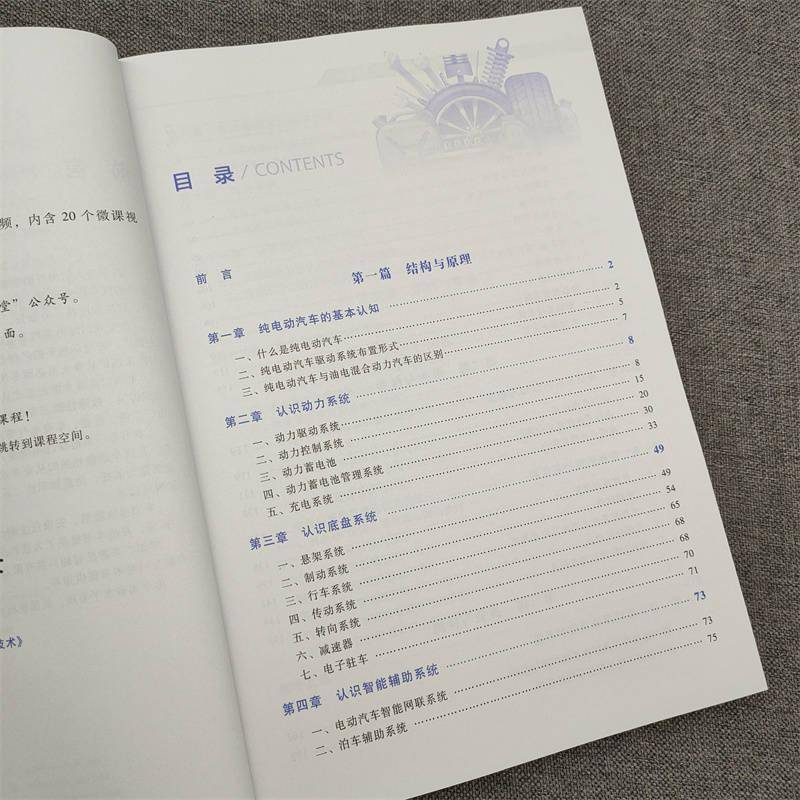 频，内含 20 个微课视
堂”公众号。
面。
课程！
跳转到课程空间。
技术》
目 录 / CONTENTS
前 言
第一篇 结构与原理
第一章 纯电动汽车的基本认知 2
一、什么是纯电动汽车 2
二、纯电动汽车驱动系统布置形式 5
三、纯电动汽车与油电混合动力汽车的区别 7
第二章 认识动力系统 8
一、动力驱动系统 8
二、动力控制系统 15
三、动力蓄电池 20
四、动力蓄电池管理系统 30
五、充电系统 33
第三章 认识底盘系统 49
一、悬架系统 49
二、制动系统 54
三、行车系统 65
四、传动系统 68
五、转向系统 68
六、减速器 70
七、电子驻车 71
第四章 认识智能辅助系统 73
一、电动汽车智能网联系统 73
二、泊车辅助系统 75